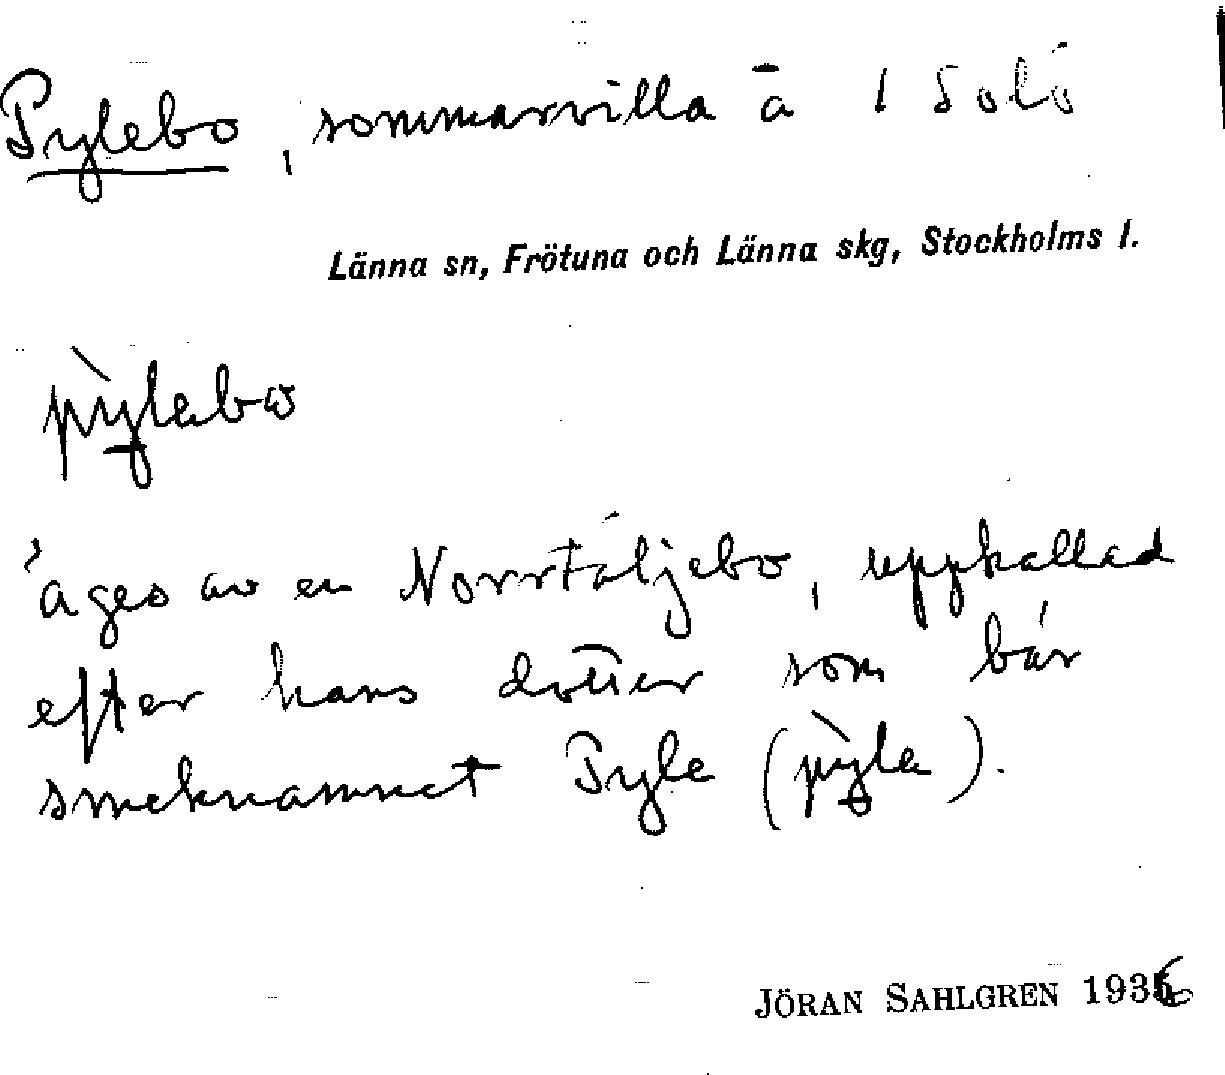 Pylebo, sommarvilla å 1 Solö
Länna sn, Frötuna och Länna skg, Stockholms l.
pỳlebω
äges av en Norrtäljebo, uppkallad
efter hans dotter som bär
smeknamnet Pyle (pỳle).
JÖRAN SAHLGREN 1936